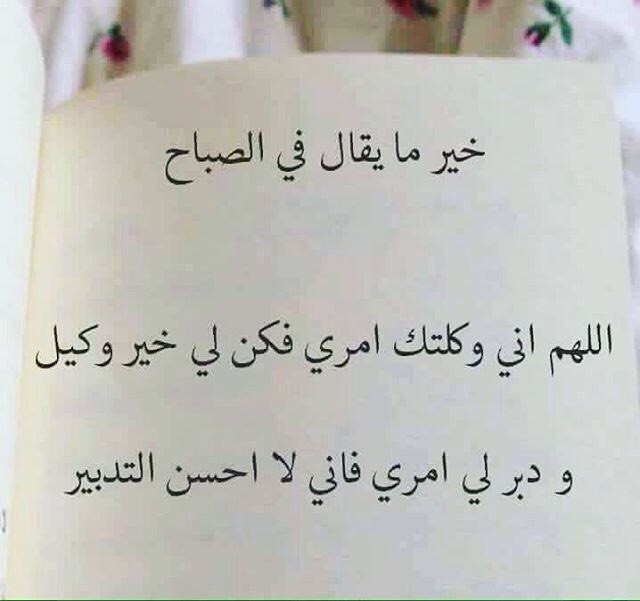 خير ما يقال في الصباح
اللهم اني وكلتك امري فكن لي خير وكيل
و دبر لي امري فاني لا احسن التدبير